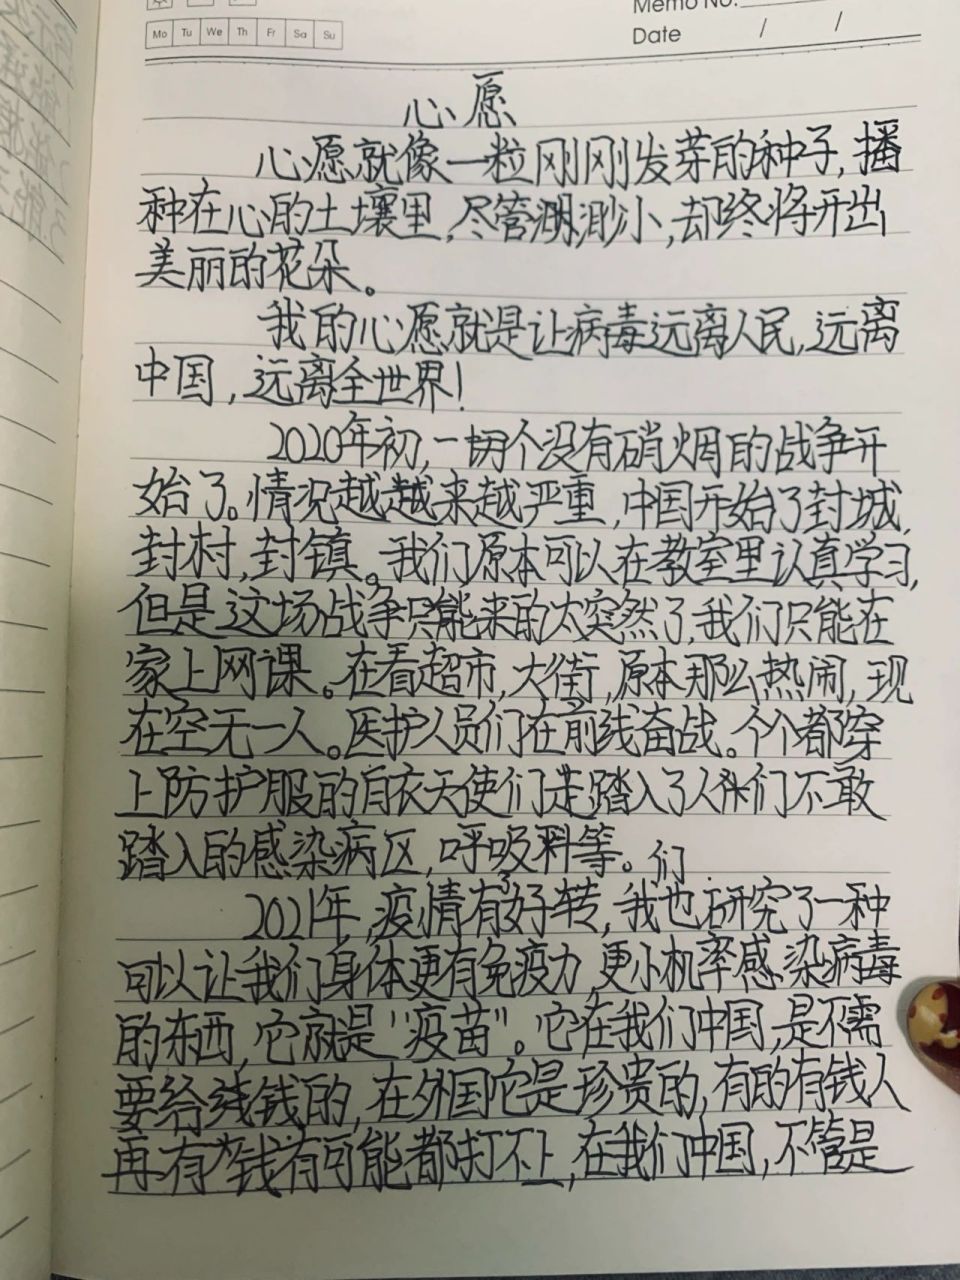 Memo No.
Mo Tu We Th Fr Sa Su
Date / /
心愿
心愿就像一粒刚刚发芽的种子，播
种在心的土壤里，尽管渺小，却终将开出
美丽的花朵。
我的心愿就是让病毒远离人民，远离
中国，远离全世界！
2020年初，一场个没有硝烟的战争开
始了。情况越越来越严重，中国开始了封城，
封村，封镇。我们原本可以在教室里认真学习，
但是这场战争只能来的太突然了，我们只能在
家上网课。在看超市，大街，原本那么热闹，现
在空无一人。医护人员们在前线奋战。个个都穿
上防护服的白衣天使们走踏入了人们不敢
踏入的感染病区，呼吸科等。们
2021年，疫情有了好转，我也研究了一种
可以让我们身体更有免疫力，更小机率感染病毒
的东西，它就是“疫苗”。它在我们中国，是不需
要给钱的，在外国它是珍贵的，有的有钱人
再有钱有可能都打不上，在我们中国，不管是